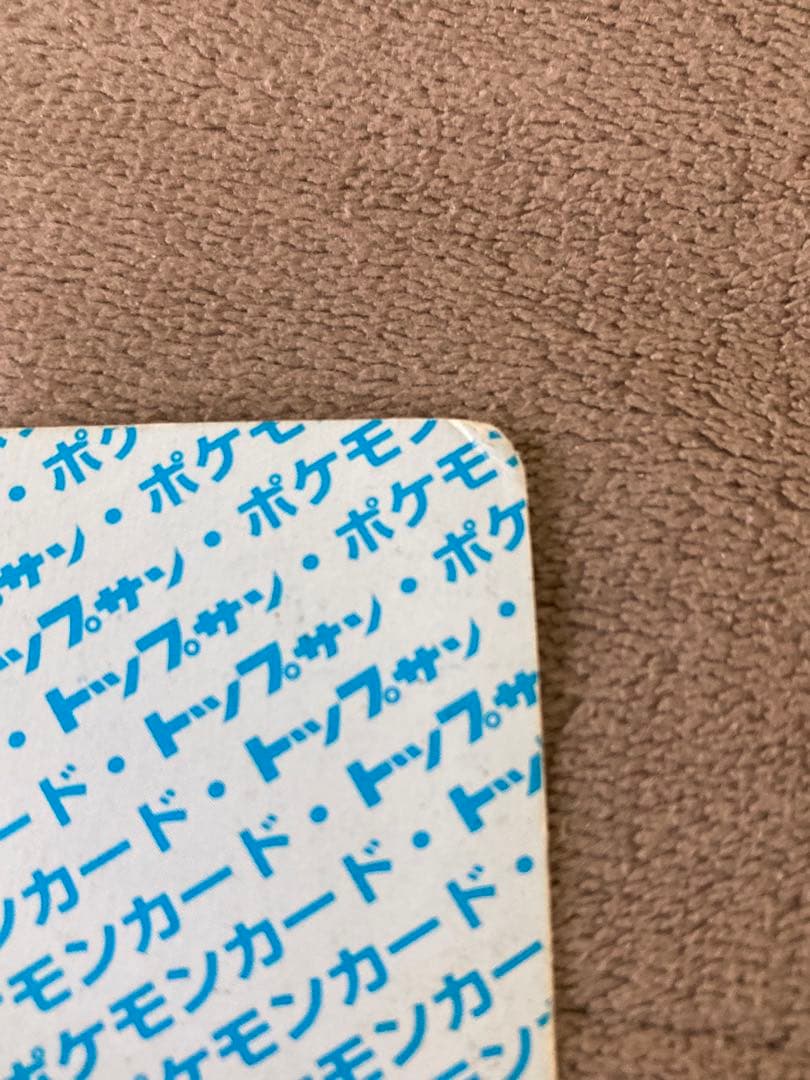 ・ポケ
サン・ポケモ
ップサン・ポケモン
・トップサン・ポケモン
ード・トップサン・ポケ
ンカード・トップサン・
モンカード・トップサ
ポケモンカード・トッ
ケモンカード・
モンカー
ン